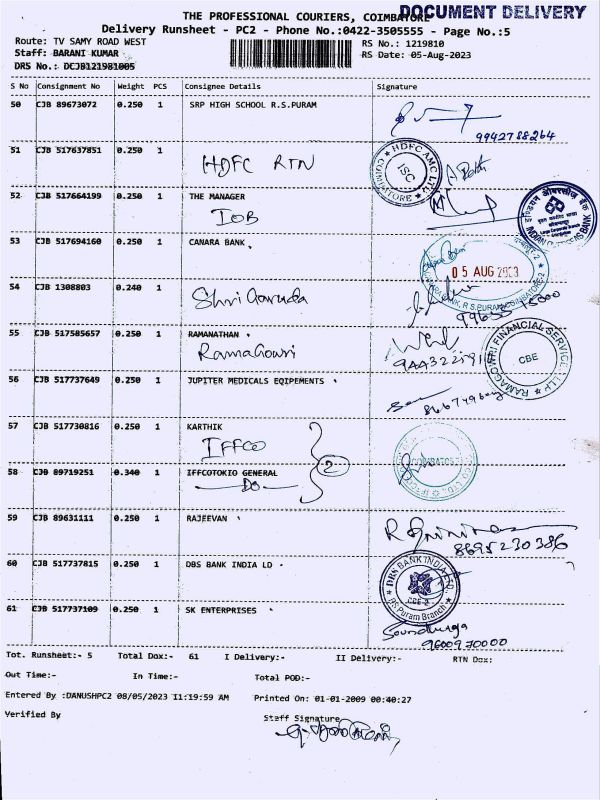 THE PROFESSIONAL COURIERS, COIMBATORE
DOCUMENT DELIVERY
Delivery Runsheet - PC2 - Phone No.:0422-3505555 - Page No.:5
Route: TV SAMY ROAD WEST
RS No.: 1219810
Staff: BARANI KUMAR
RS Date: 05-Aug-2023
DRS No.: DCJB121981005
S No Consignment No Weight PCS Consignee Details Signature
50 CJB 89673072 0.250 1 SRP HIGH SCHOOL R.S.PURAM
9942788264
51 CJB 517637851 0.250 1
HDFC RTN
HDFC AMC LTD
ISC
COIMBATORE
52 CJB 517664199 0.250 1 THE MANAGER
IOB
53 CJB 517694160 0.250 1 CANARA BANK
05 AUG 2023
54 CJB 1308803 0.240 1
Shri Garuda
55 CJB 517505657 1 RAMANATHAN
RamaGowri
RAMAGOWRI FINANCIAL SERVICE LLP
CBE
56 CJB 517737649 0.250 1 JUPITER MEDICALS EQIPEMENTS
57 CJB 517730816 0.250 1 KARTHIK
IFFCO
2
58 CJB 89719251 0.340 1 IFFCOTOKIO GENERAL
DO
59 CJB 89631111 0.250 1 RAJEEVAN
8695230386
60 CJB 517737815 0.250 1 DBS BANK INDIA LD
DBS BANK INDIA LTD
RS Puram Branch
61 CJB 517737109 0.250 1 SK ENTERPRISES
9600970000
Tot. Runsheet:- 5 Total Dox:- 61 I Delivery:- II Delivery:- RTN Dox:
Out Time:- In Time:- Total POD:-
Entered By :DANUSHPC2 08/05/2023 11:19:59 AM Printed On: 01-01-2009 00:40:27
Verified By Staff Signature